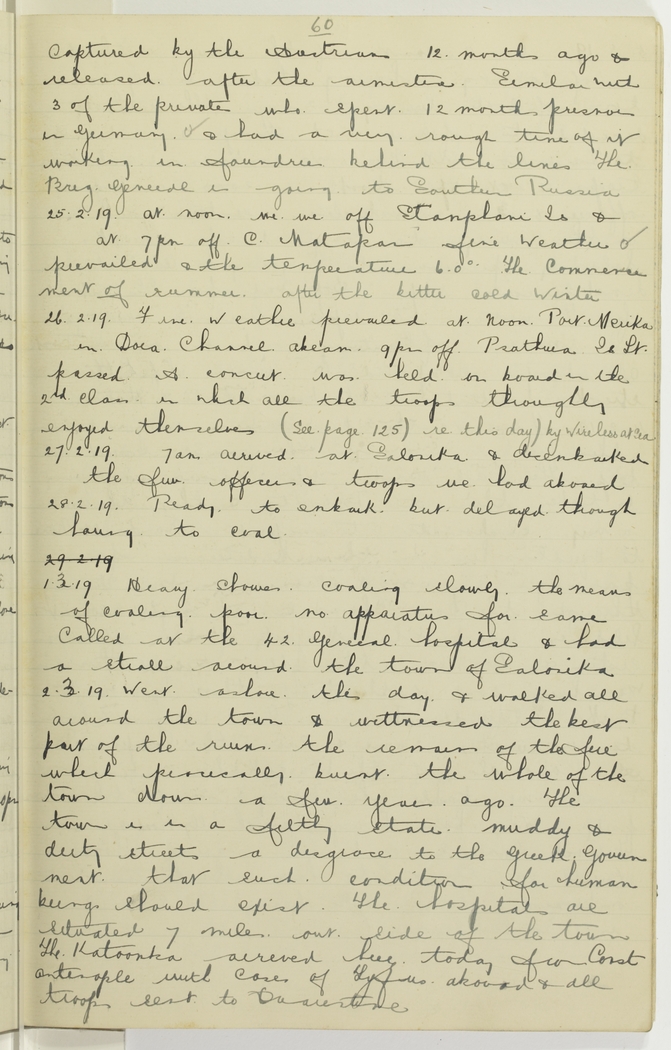 60
captured by the Austrians 12 months ago &
released after the armistice. Similar with
3 of the privates who spent 12 months prisoners
in Germany. & had a very rough time of it
working in foundries behind the lines The
Brig. General is going to Southern Russia
25.2.19. at noon. we were off Is &
at 7pm off C. Matapan fine weather
prevailed & the temperature 60°. The commence
ment of summer. after the bitter cold winter
26.2.19. Fine weather prevailed at noon. Port.
in Doro Channel abeam. 9pm off Psathura Is Lt.
passed. A concert was held on board in the
2nd class in which all the troops throughly
enjoyed themselves (See page 125) re. this day) by wireless at sea
27.2.19. 7am arrived at Salonika & disembarked
the few officers & troops we had aboard
28.2.19. Ready to embark but delayed through
having to coal.
29.2.19
1.3.19 Heavy showers. coaling slowly. the means
of coaling poor no apparatus for same
Called at the 42 General hospital & had
a stroll around the town of Salonika
2.3.19. Went ashore this day & walked all
around the town & wittnessed the best
part of the ruins the remains of the fire
which practically burnt the whole of the
town down a few years ago. The
town is in a filthy state. muddy &
dirty streets a disgrace to the Greek Govern
ment. that such condition for human
beings should exist. The hospitals are
situated 7 miles out side of the town
The Katoomba arrived here today from Const
antinople with cases of Typus aboard & all
troops sent to Quarantine